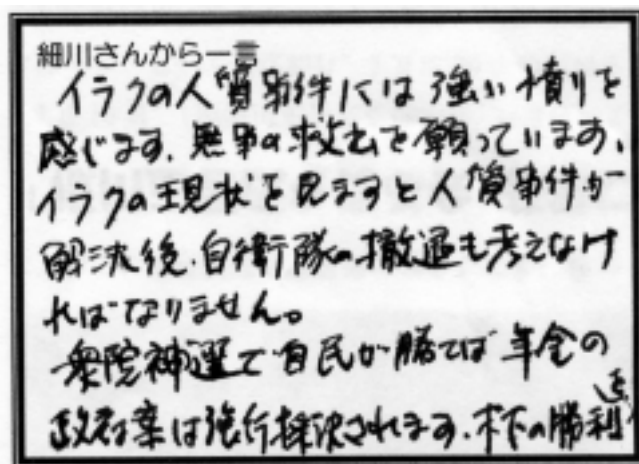 細川さんから一言
イラクの人質事件には強い憤りを
感じます。無事の救出を願っています。
イラクの現状を見ますと人質事件が
解決後、自衛隊の撤退も考えなけ
ればなりません。
衆院補選で自民が勝てば年金の
政府案は強行採決されます。木下の勝利